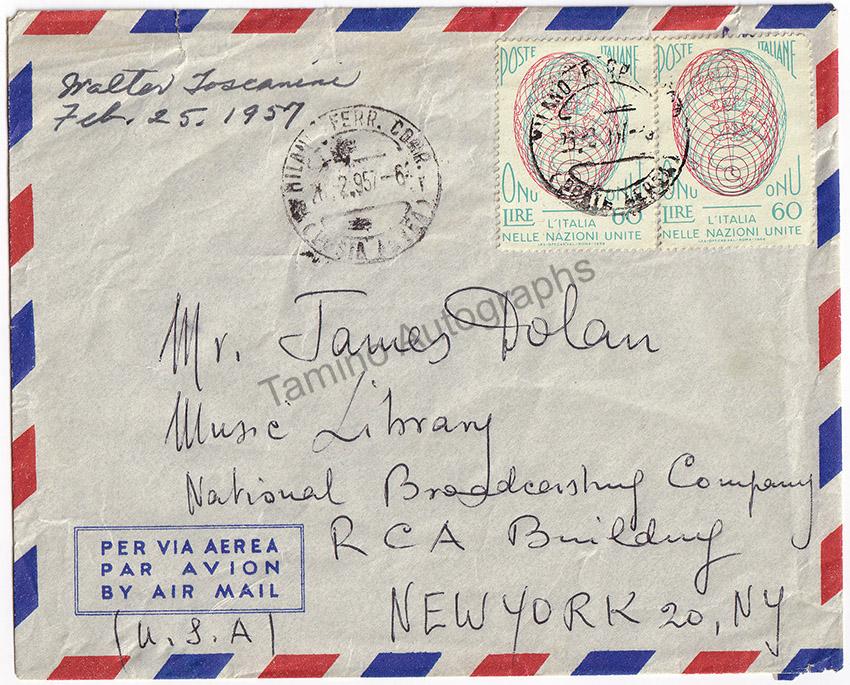 Walter Toscanini
Feb. 25. 1957
MILANO FERR. CORR.
2.957-6
(POSTA AEREA)
POSTE ITALIANE
ONU ONU
LIRE 60
L'ITALIA
NELLE NAZIONI UNITE
POSTE ITALIANE
ONU ONU
LIRE 60
L'ITALIA
NELLE NAZIONI UNITE
Mr. James Dolan
Tamino Autographs
Music Library
National Broadcasting Company
RCA Building
PER VIA AEREA
PAR AVION
BY AIR MAIL
NEW YORK 20, NY
(U.S.A)